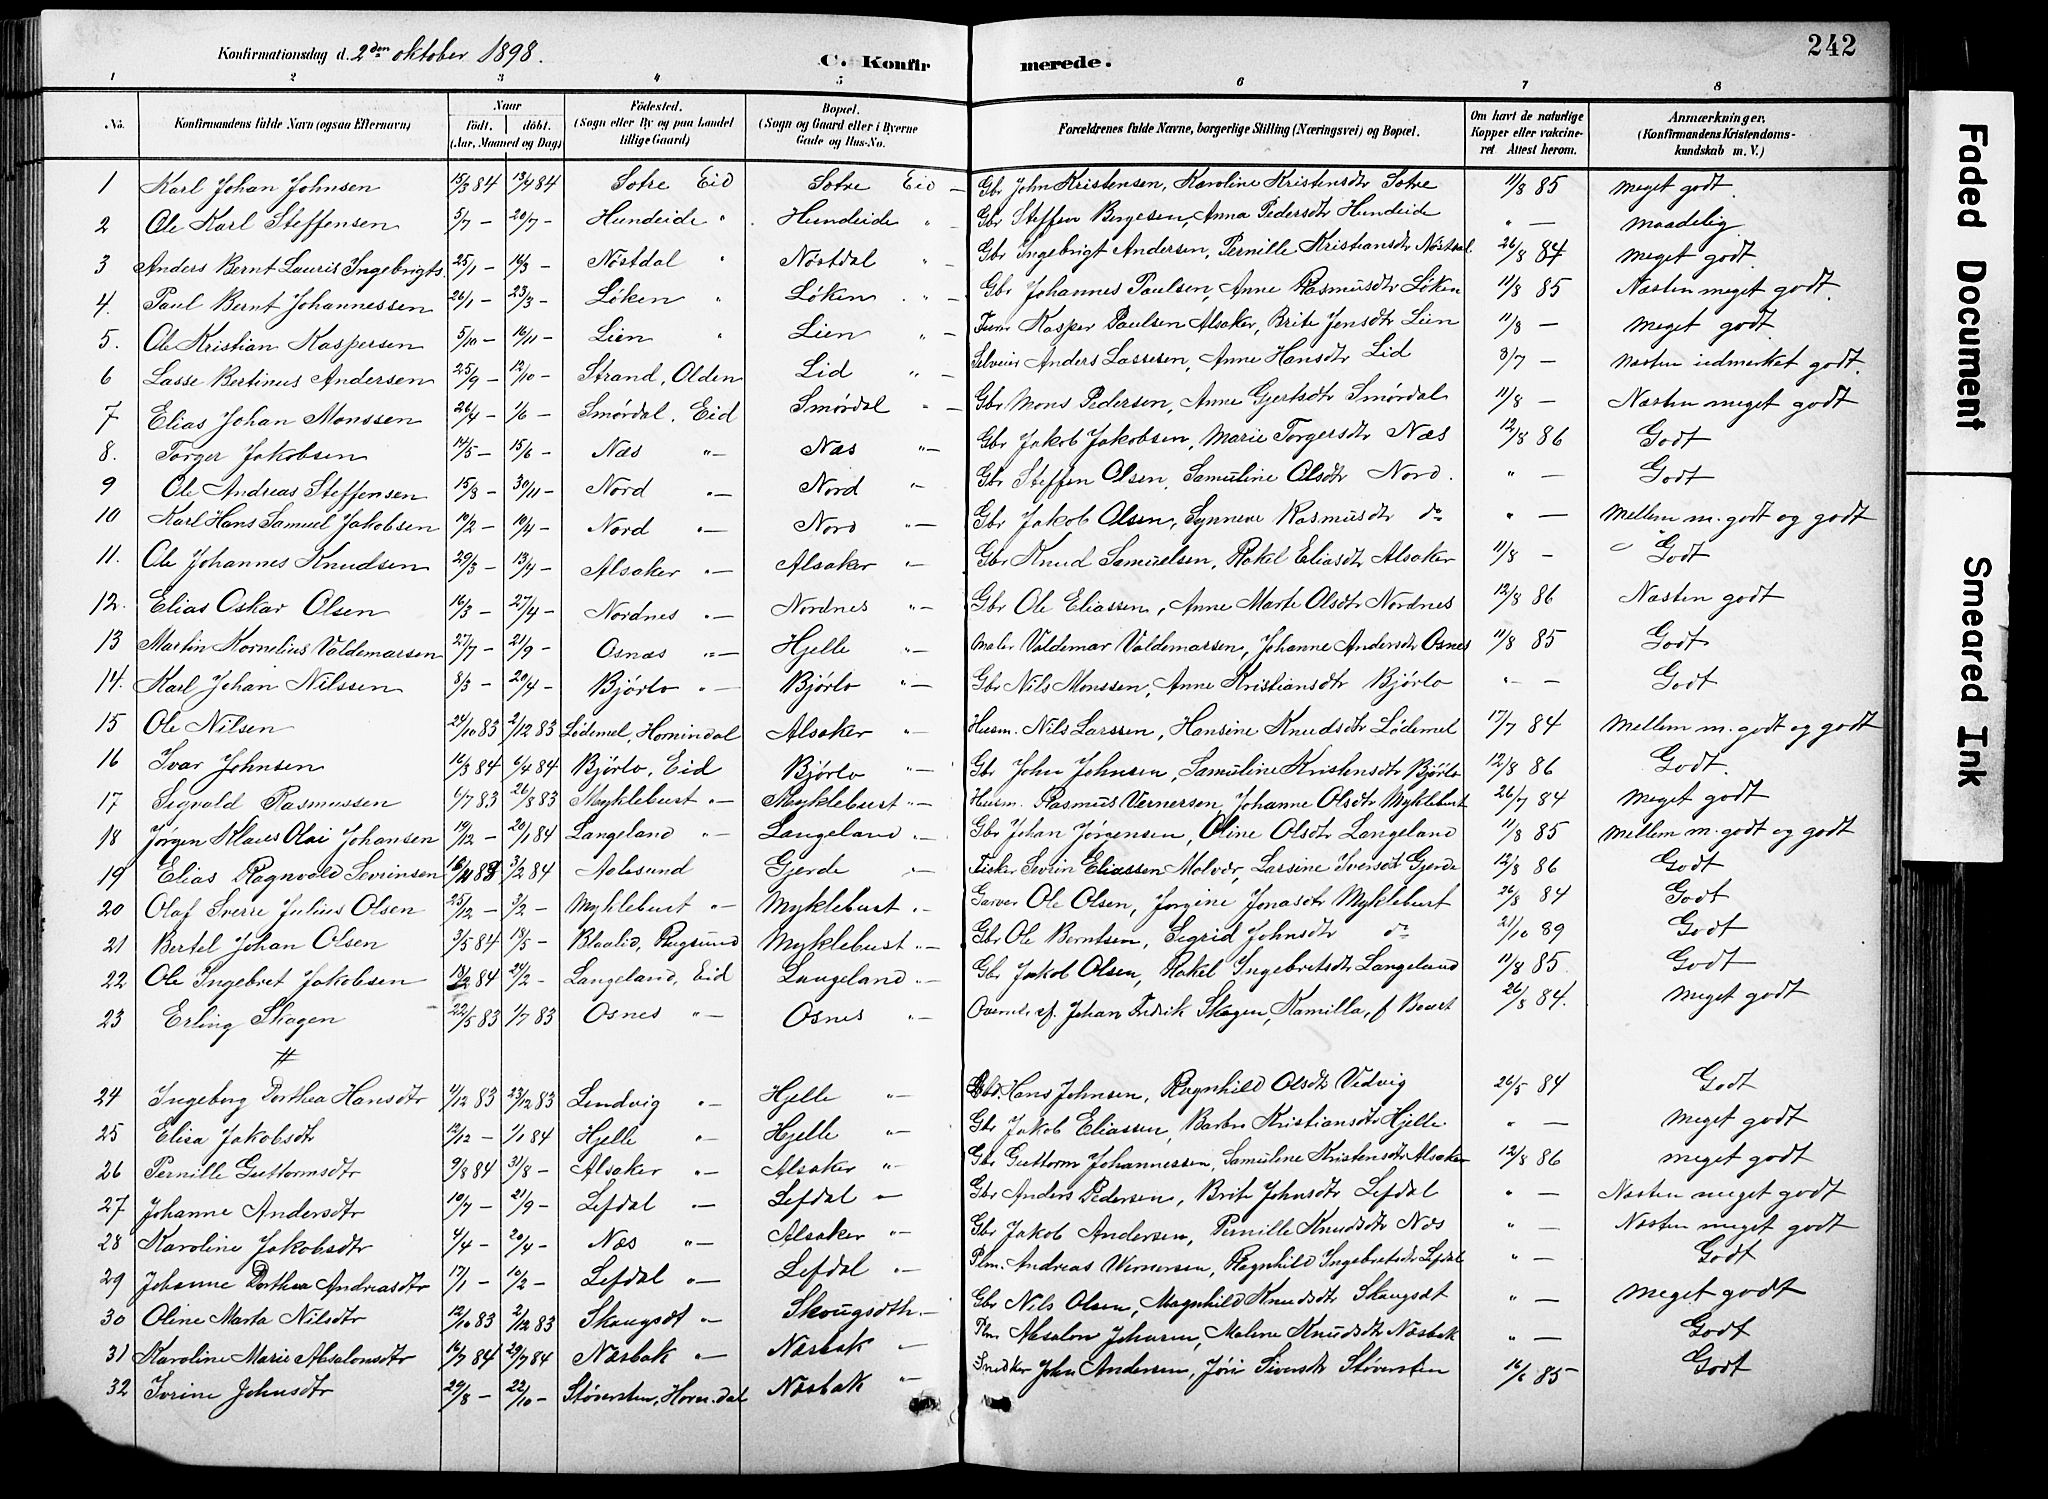 Konfirmationsdag d. 2den oktober 1898.
C. Konfirmerede.
242
1 2 3 4 5 6 7 8
No. | Konfirmandens fulde Navn (ogsaa Efternavn) | Naar født. døbt. (Aar, Maaned og Dag) | Fødested. (Sogn eller By og paa Landet tillige Gaard) | Bopæl. (Sogn og Gaard eller i Byerne Gade og Hus-No. | Forældrenes fulde Navne, borgerlige Stilling (Næringsvei) og Bopæl. | Om havt de naturlige Kopper eller vaccineret Attest herom. | Anmærkninger. (Konfirmandens Kristendomskundskab m. V.)
1 Karl Johan Johnsen 15/3 84 13/4 84 Sotre Eid Sotre Eid – Gbr John Kristensen, Karoline Kristensdtr Sotre 11/8 85 meget godt
2 Ole Karl Steffensen 5/7 – 20/7 – Hundeide " Hundeide " Gbr Steffen Børgesen, Anna Pedersdtr Hundeide " – maadelig
3 Anders Bernt Lauris Ingebrigts. 25/1 – 16/3 – Nöstdal " Nöstdal " – Gbr Ingebrigt Andersen, Pernille Kristiansdtr Nöstdal 26/8 84 meget godt
4. Paul Bernt Johannessen 26/1 – 23/3 – Löken " Löken " – Gbr Johannes Paulsen, Anne Rasmusdtr Löken 11/8 85 Næsten meget godt.
5. Ole Kristian Kaspersen 5/10 – 16/11 – Lien " Lien " – Kasper Paulsen Alsaker, Brite Jensdtr Lien 11/8 – meget godt
6 Lasse Bertinus Andersen 25/9 – 12/10 – Strand, Olden Lid " – Anders Lassesen, Anne Hansdtr Lid 3/7 – næsten udmerket godt.
7 Elias Johan Monssen 26/4 – 1/6 – Smördal, Eid Smördal " – Gbr Mons Pedersen, Anne Gjertsdtr Smördal 11/8 – Næsten meget godt
8. Torger Jakobsen 14/5 – 15/6 – Næs " – Næs " – Gbr Jakob Jakobsen, Marie Torgersdtr Næs 12/8 86 Godt
9 Ole Andreas Steffensen 15/8 – 30/11 – Nord " – Nord " Gbr Steffen Olsen, Samuline Olsdtr Nord. " – Godt
10 Karl Hans Samuel Jakobsen 10/2 – 10/4 – Nord " – Nord " – Gbr Jakob Olsen, Synneve Rasmusdtr do " – Mellem m. godt og godt
11. Ole Johannes Knudsen 29/3 – 13/4 – Alsaker " – Alsaker " – Gbr Knud Samuelsen, Rakel Eliasdtr Alsaker 11/8 – Godt
12. Elias Oskar Olsen 16/3 – 27/4 – Nordnes " – Nordnes " – Gbr Ole Eliassen, Anne Marte Olsdtr Nordnes 12/8 86 Næsten godt
13 Martin Kornelius Valdemarsen 27/7 – 21/9 – Osnæs " – Hjelle " – Maler Valdemar Valdemarsen, Johanne Andersdtr Osnes 11/8 85 Godt
14. Karl Johan Nilssen 8/3 – 20/4 – Björlo " – Björlo " – Gbr Nils Monssen, Anne Kristiansdtr Björlo " – Godt
15 Ole Nilsen 24/10 83 2/12 83 Lödemel, Hornindal Alsaker " – Husm. Nils Larssen, Hansine Knudsdtr Lödemel 17/7 84 Mellem m. godt og godt
16 Ivar Johnsen 16/3 84 6/4 84 Björlo, Eid Björlo " – Gbr John Johnsen, Samuline Kristensdtr Björlo 12/8 86 Godt.
17 Sigvald Rasmussen 6/7 83 26/8 83 Myklebust " – Myklebust " – Husm. Rasmus Vernersen, Johanne Olsdtr Myklebust 26/7 84 Meget godt
18 Jörgen Klaus Olai Johansen 19/12 – 20/1 84 Langeland " – Langeland " – Gbr Johan Jörgensen, Oline Olsdtr Langeland 11/8 85 Mellem m. godt og godt
19 Elias Ragnvald Sevrinsen 83 3/2 84 Aalesund Gjerde " Fisker Sevrin Eliassen Molvær, Larsine Iversdtr Gjerde 12/8 86 Godt
20 Olaf Sverre Julius Olsen 25/12 – 3/2 – Myklebust " – Myklebust " – Garver Ole Olsen, Jörgine Jonasdtr Myklebust 26/8 84 Godt
21 Bertel Johan Olsen 3/5 84 18/5 – Blaalid, Rugsund Myklebust " – Gbr Ole Berntsen, Sigrid Johnsdtr do 21/10 89 Godt
22 Ole Ingebret Jakobsen 84 24/2 – Langeland, Eid Langeland " – Gbr Jakob Olsen, Rakel Ingebretsdtr Langeland 11/8 85. Godt
23 Erling Skagen 22/5 83 1/7 83 Osnes " – Osnes " – Johan Fredrik Skagen, Kamilla, f 26/8 84. Meget godt
#
24 Ingeborg Dorthea Hansdtr 1/12 83 23/12 83 Lendvig " – Hjelle " – Hans Johnsen, Ragnhild Olsdtr Vedvig 26/5 84 Godt
25 Elisa Jakobsdtr 12/12 – 1/1 84 Hjelle " – Hjelle " – Gbr Jakob Eliassen, Barbro Kristiansdtr Hjelle " – Meget godt
26 Pernille Guttormsdtr 9/8 84 31/8 – Alsaker " – Alsaker " – Gbr Guttorm Johannessen, Samuline Kristensdtr Alsaker 12/8 86 meget godt
27 Johanne Andersdtr 10/7 – 21/9 – Lefdal " – Lefdal " – Gbr Anders Pedersen, Brite Johnsdtr Lefdal " – Næsten meget godt
28 Karoline Jakobsdtr 4/4 – 20/4 – Næs " – Alsaker " – Gbr Jakob Andersen, Pernille Knudsdtr Næs " – Næsten meget godt
29 Johanne Dorthea Andreasdtr 17/1 – 10/2 – Lefdal " – Lefdal " – Plm. Andreas Vernersen, Ragnhild Ingebretsdtr Lefdal " – Godt
30 Oline Marta Nilsdtr 12/10 83 2/12 83 Skaugsdt " – Skougsdth – Gbr Nils Olsen, Magnhild Knudsdtr Skaugsdt " – Meget godt
31 Karoline Marie Absalonsdtr 16/7 84 29/7 84 Næsbak " – Næsbak " – Plm Absalon Johnsen, Malene Knudsdtr Næsbak " – Godt
32 Ivrine Johnsdtr 29/8 – 22/10 – Störersten, Horn.dal Næsbak " – Snedker John Andersen, Jöri Sivertsdtr Störersten 16/6 85 Godt
Faded Document
Smeared Ink